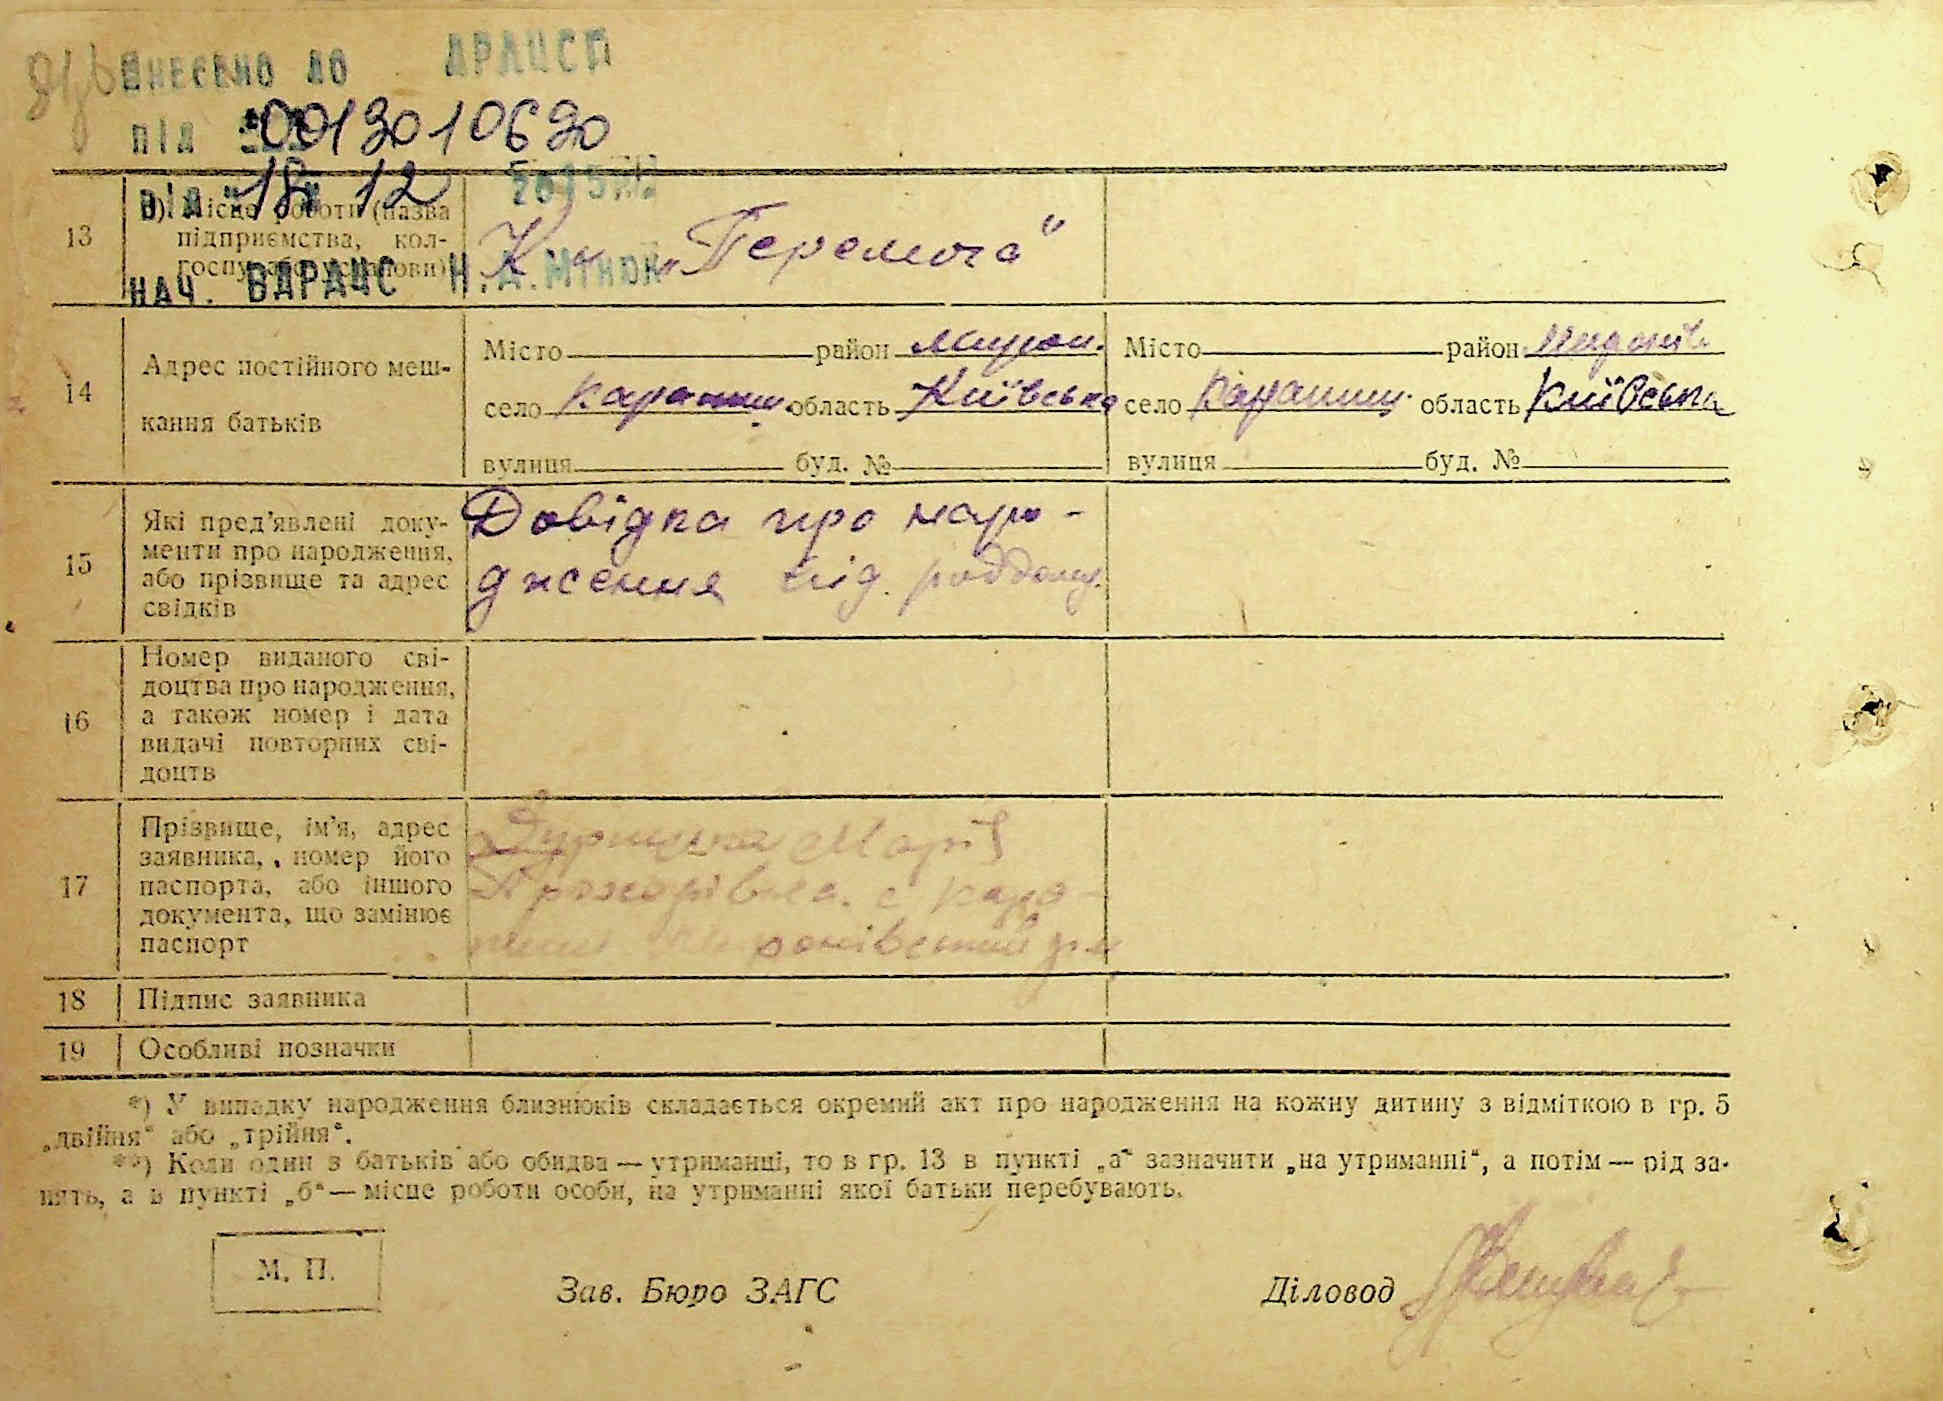 ВНЕСЕНО ДО АРАЦСП
ПІД 0013010690
ВІД "18" 12 2015
НАЧ. ВДРАЦС Н.А.
13 б) Місце роботи (назва
підприємства, кол-
госпу або установи)
К-п „Перемога“
14 Адрес постійного меш-
кання батьків
Місто район Мирон.
село Карапиши область Київська
вулиця буд. №
Місто район Миронів
село Карапиш область Київська
вулиця буд. №
15 Які пред'явлені доку-
менти про народження,
або прізвище та адрес
свідків
Довідка про наро-
дження від роддому.
16 Номер виданого сві-
доцтва про народження,
а також номер і дата
видачі повторних сві-
доцтв
17 Прізвище, ім'я, адрес
заявника, номер його
паспорта, або іншого
документа, що замінює
паспорт
Марія
Прохорівна. с Кара-
пиши Миронівський р-н
18 Підпис заявника
19 Особливі позначки
*) У випадку народження близнюків складається окремий акт про народження на кожну дитину з відміткою в гр. 5
„двійня“ або „трійня“.
**) Коли один з батьків або обидва — утриманці, то в гр. 13 в пункті „а“ зазначити „на утриманні“, а потім — рід за-
нять, а в пункті „б“ — місце роботи особи, на утриманні якої батьки перебувають.
М. П.
Зав. Бюро ЗАГС
Діловод